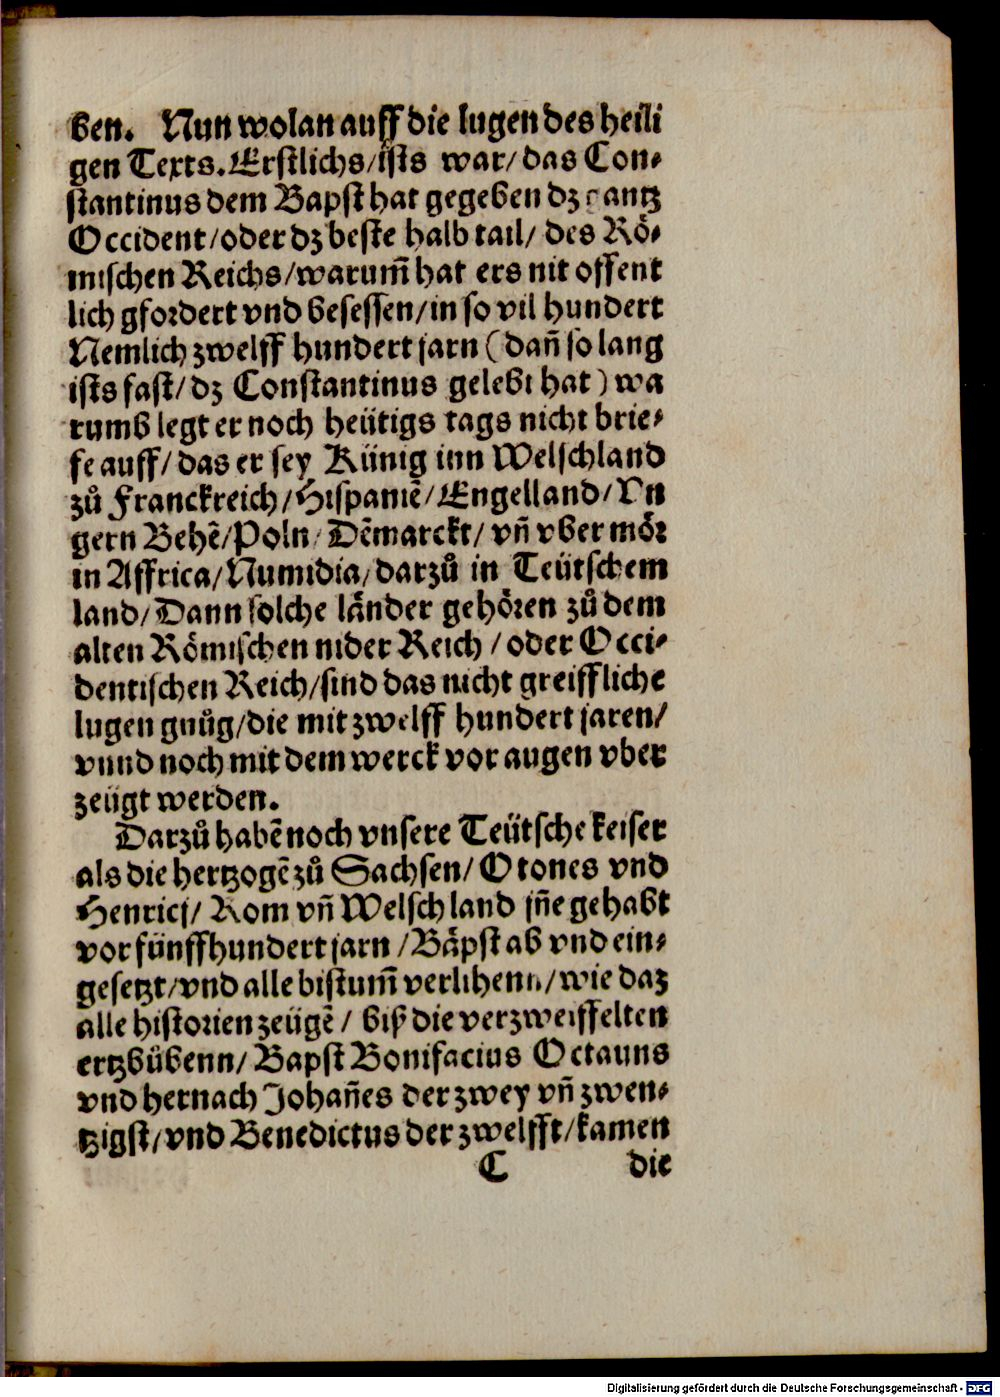 ben. Nun wolan auff die lugen des heili
gen Texts. Erstlichs/ists war/das Con⸗
stantinus dem Bapst hat gegeben dz gantz
Occident/oder dz beste halb tail/ des Rö⸗
mischen Reichs/warum̃ hat ers nit offent
lich gfordert vnd besessen/in so vil hundert
Nemlich zwelff hundert jarn (dañ so lang
ists fast/dz Constantinus gelebt hat) wa
rumb legt er noch heütigs tags nicht brie⸗
fe auff/das er sey Künig inn Welschland
zů Franckreich/Hispaniẽ/Engelland/Vn
gern Behẽ/Poln/Dẽmarckt/ vñ vber mör
in Affrica/Numidia/darzů in Teütschem
land/Dann solche länder gehören zů dem
alten Römischen nider Reich/oder Occi⸗
dentischen Reich/sind das nicht greiffliche
lugen gnůg/die mit zwelff hundert jaren/
vnnd noch mit dem werck vor augen vber
zeügt werden.
Darzů habẽ noch vnsere Teütsche keiser
als die hertzogẽ zů Sachsen/Otones vnd
Henricj/ Rom vñ Welschland jñe gehabt
vor fünffhundert jarn/Bäpst ab vnd ein⸗
gesetzt/vnd alle bistum̃ verlihenn/wie daz
alle historien zeügẽ/ biß die verzweiffelten
ertzbůbenn/Bapst Bonifacius Octauns
vnd hernach Johañes der zwey vñ zwen⸗
tzigst/vnd Benedictus der zwelfft/kamen
C die
Digitalisierung gefördert durch die Deutsche Forschungsgemeinschaft - DFG